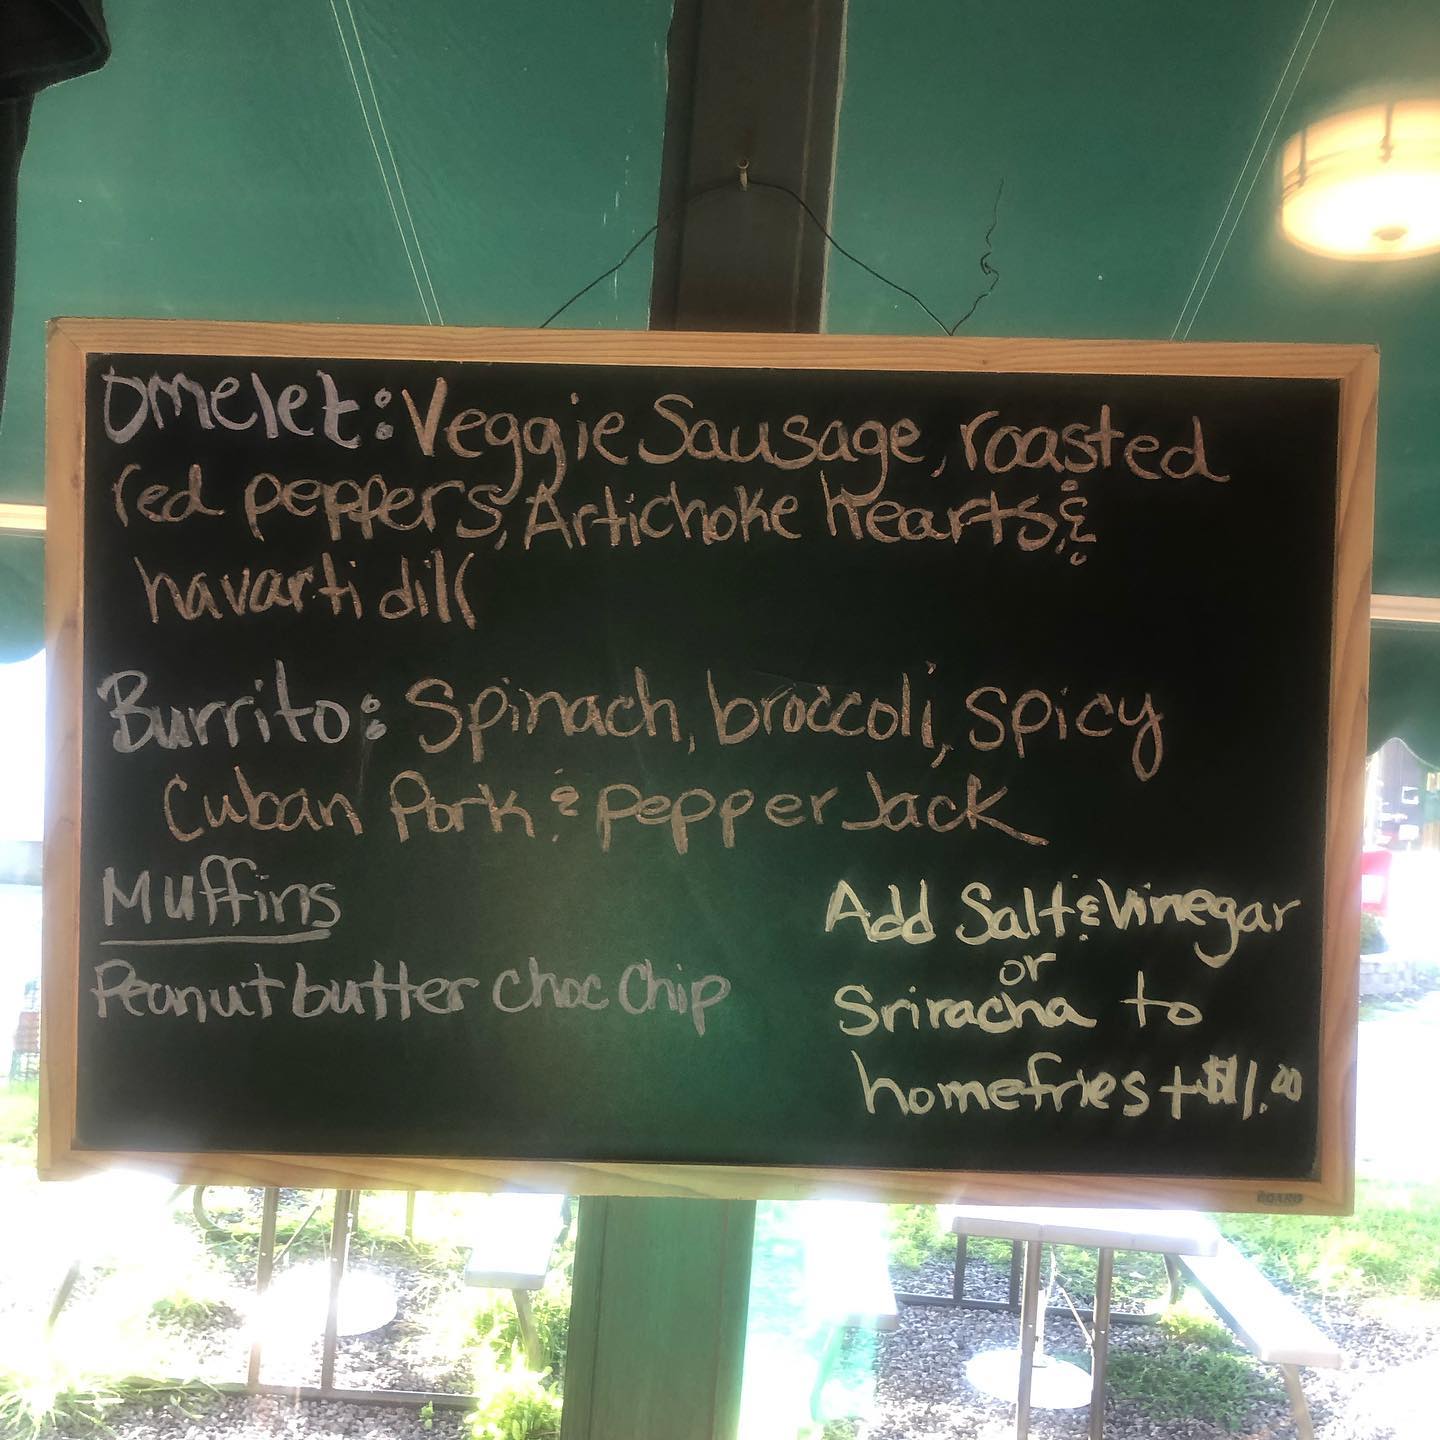 Omelet: Veggie Sausage, roasted
red peppers, Artichoke hearts, &
havarti dill
Burrito: Spinach, broccoli, spicy
Cuban Pork & pepper Jack
Muffins
Peanut butter choc chip
Add Salt & Vinegar
or
Sriracha to
homefries + $1.00
BOARD